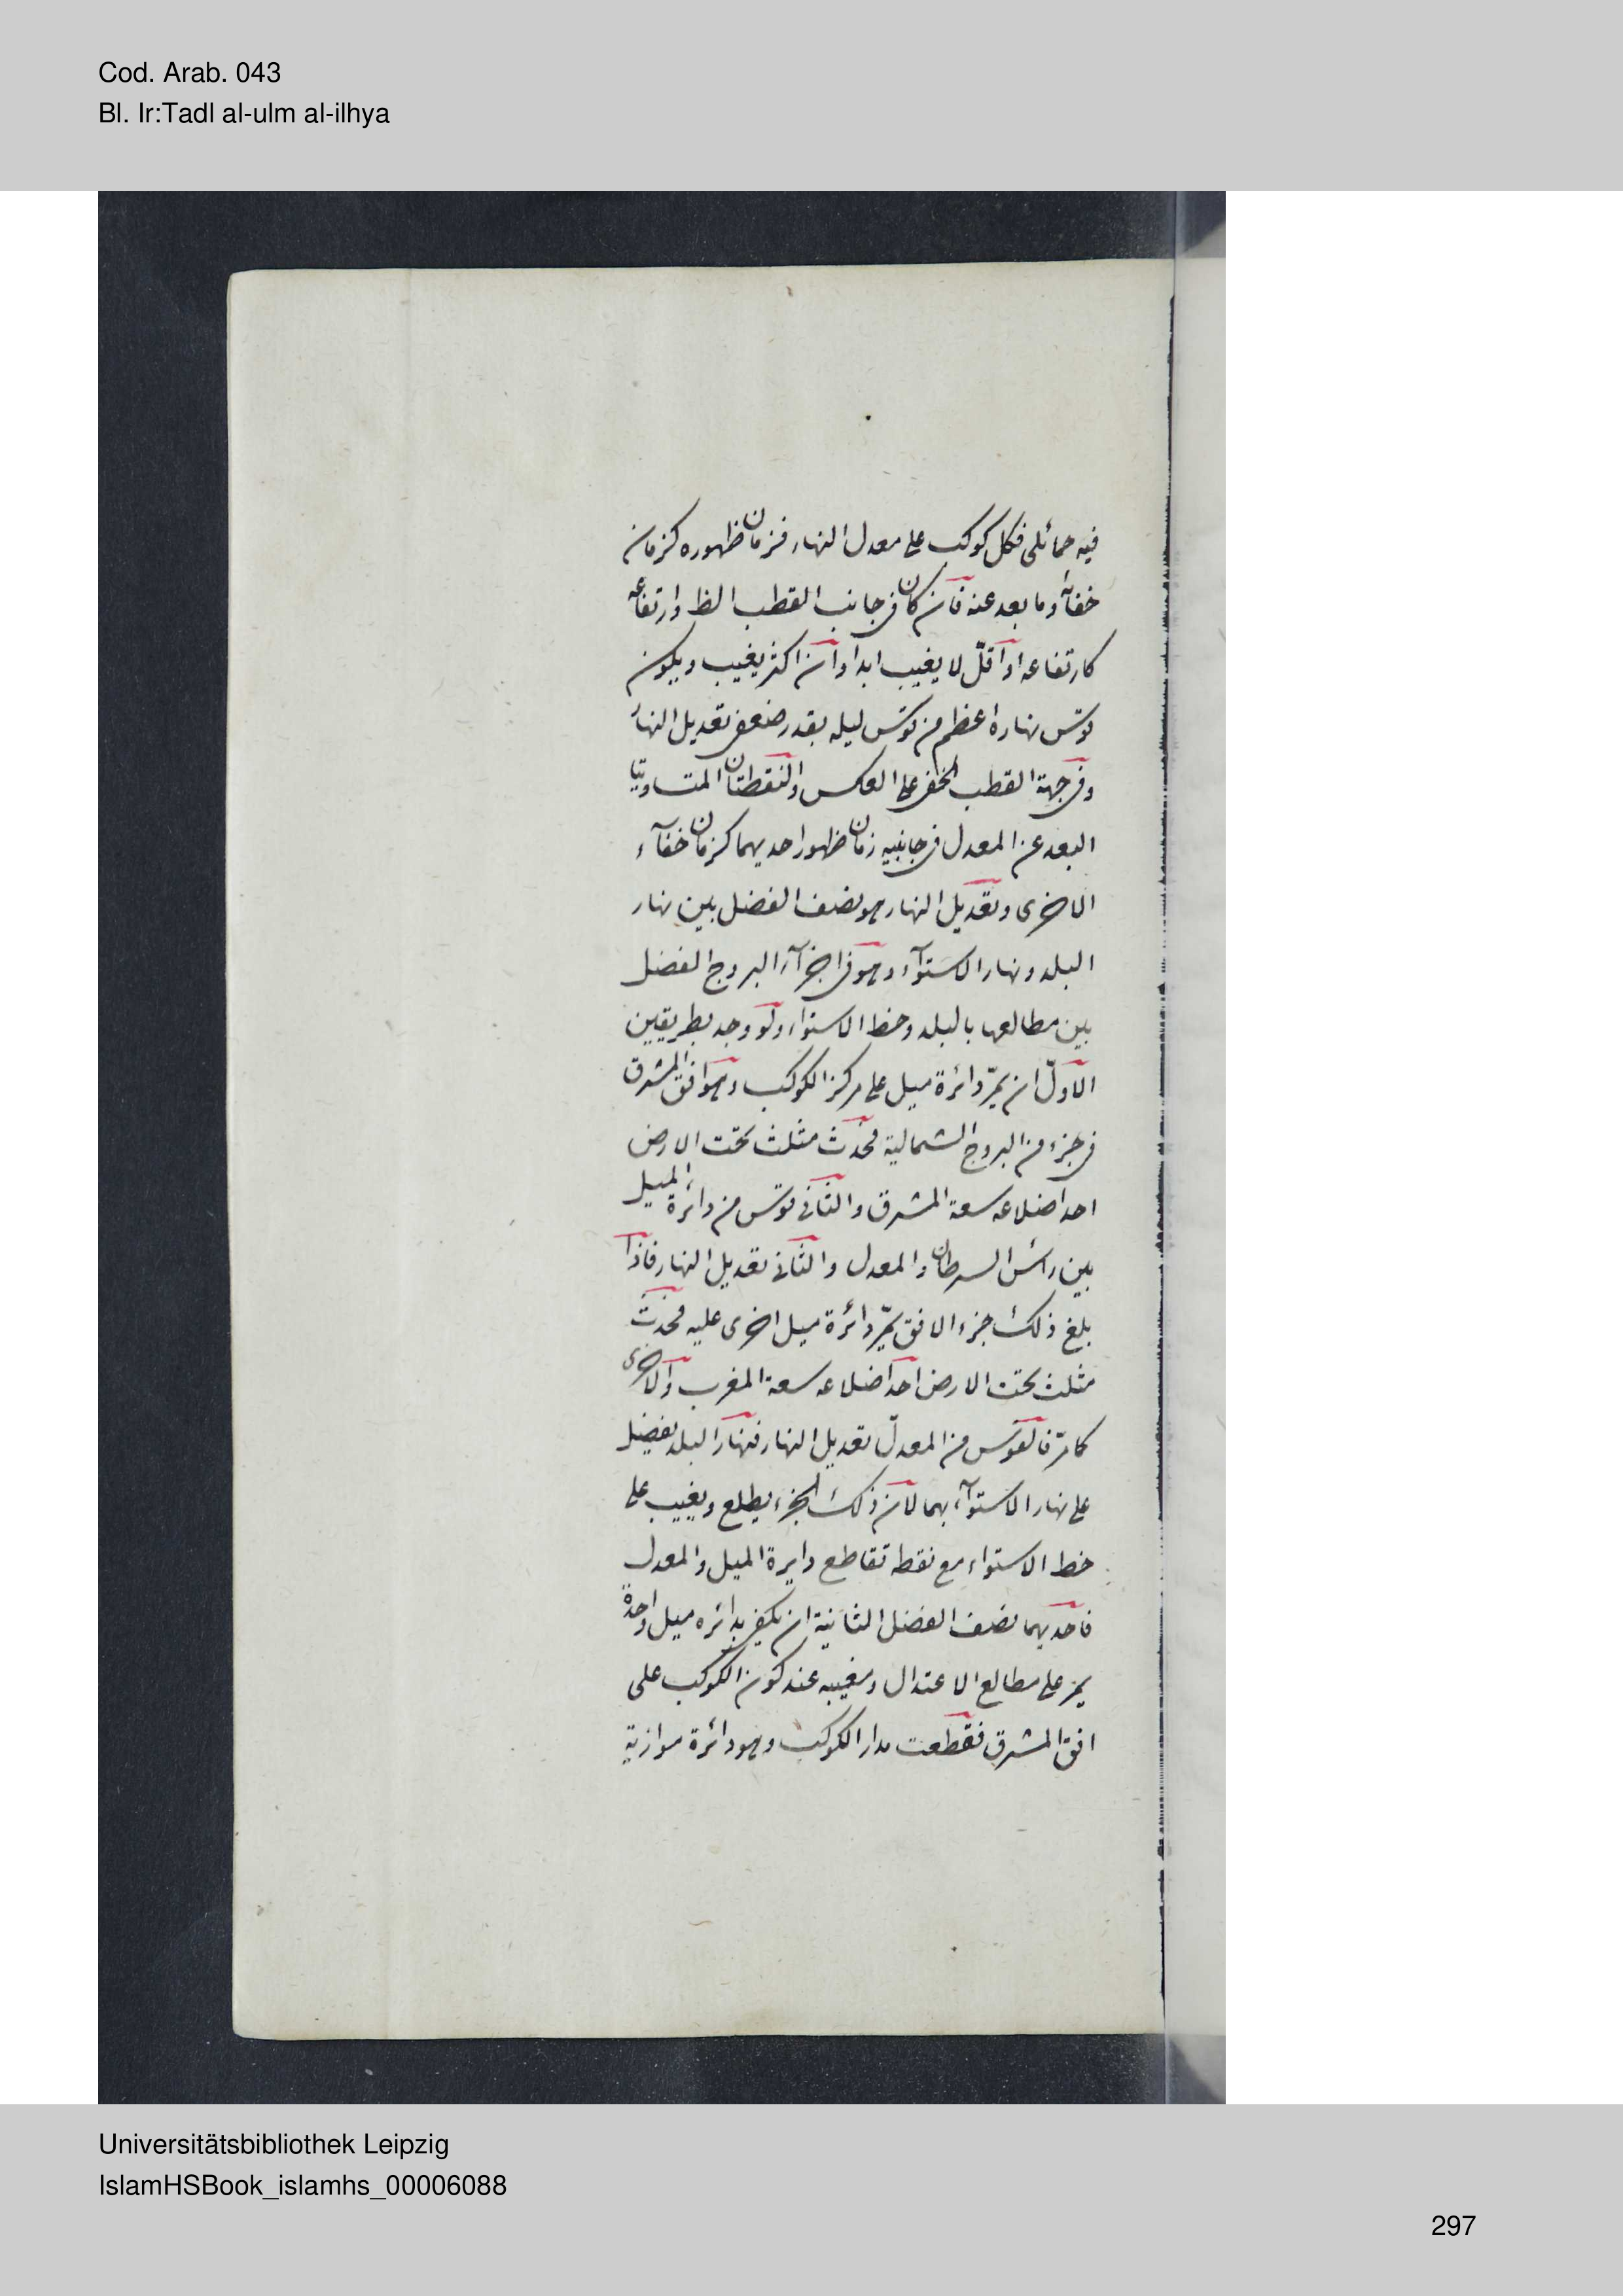 Cod. Arab. 043
Bl. Ir:Tadl al-ulm al-ilhya
فيه حمائلى فكل كوكب على معدل النهار فزمان ظهوره كزمان
خفائه وما بعد عنه فان كان فى جانب القطب الظ وارتفاعه
كارتفاعه او اقلّ لا يغيب ابدا وان اكثر يغيب ويكون
قوس نهاره اعظم من قوس ليله بقدر ضعف تعديل النها
وفى جهة القطب الخفى على العكس والنقطتان المتساويتا
البعد عن المعدل فى جانبيه زمان ظهور احديهما كزمان خفآء
الاخرى وتعديل النهار هو نصف الفضل بين نهار
البلد ونهار الاستوآء وهو فى اجزآء البروج الفضل
بين مطالعها بالبلد وخط الاستواء ولو وجد بطريقين
الاوّل ان يمرّ دائرة ميل على مركز الكوكب وهو افق المشرق
فى جزء من البروج الشمالية فحدث مثلث تحت الارض
احد اضلاعه سعة المشرق والثانى قوس من دائرة الميل
بين راس السرطان والمعدل والثانى تعديل النهار فاذا
بلغ ذلك جزء الافق يمرّ دائرة ميل اخرى عليه فحدث
مثلث تحت الارض احد اضلاعه سعة المغرب والاخرى
كما مرّ فالقوس من المعدلّ تعديل النهار فنهار البلد يفضل
على نهار الاستوآء بهما لان ذلك الجزء يطلع ويغيب على
خط الاستواء مع نقطه تقاطع دايرة الميل والمعدل
فاحديهما نصف الفضل الثانية ان يكفى بدائره ميل واحدة
يمر على مطالع الاعتدال ومغيبه عند كون الكوكب على
افق المشرق فقطعت مدار الكوكب وهو دائرة موازية
Universitätsbibliothek Leipzig
IslamHSBook_islamhs_00006088
297